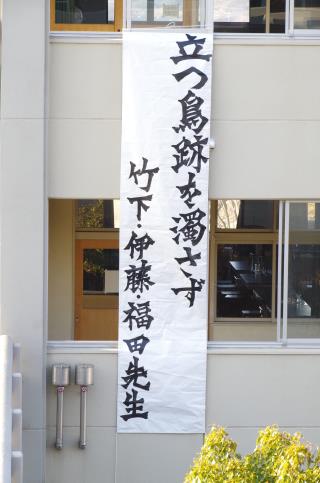 立つ鳥跡を濁さず
竹下・伊藤・福田先生